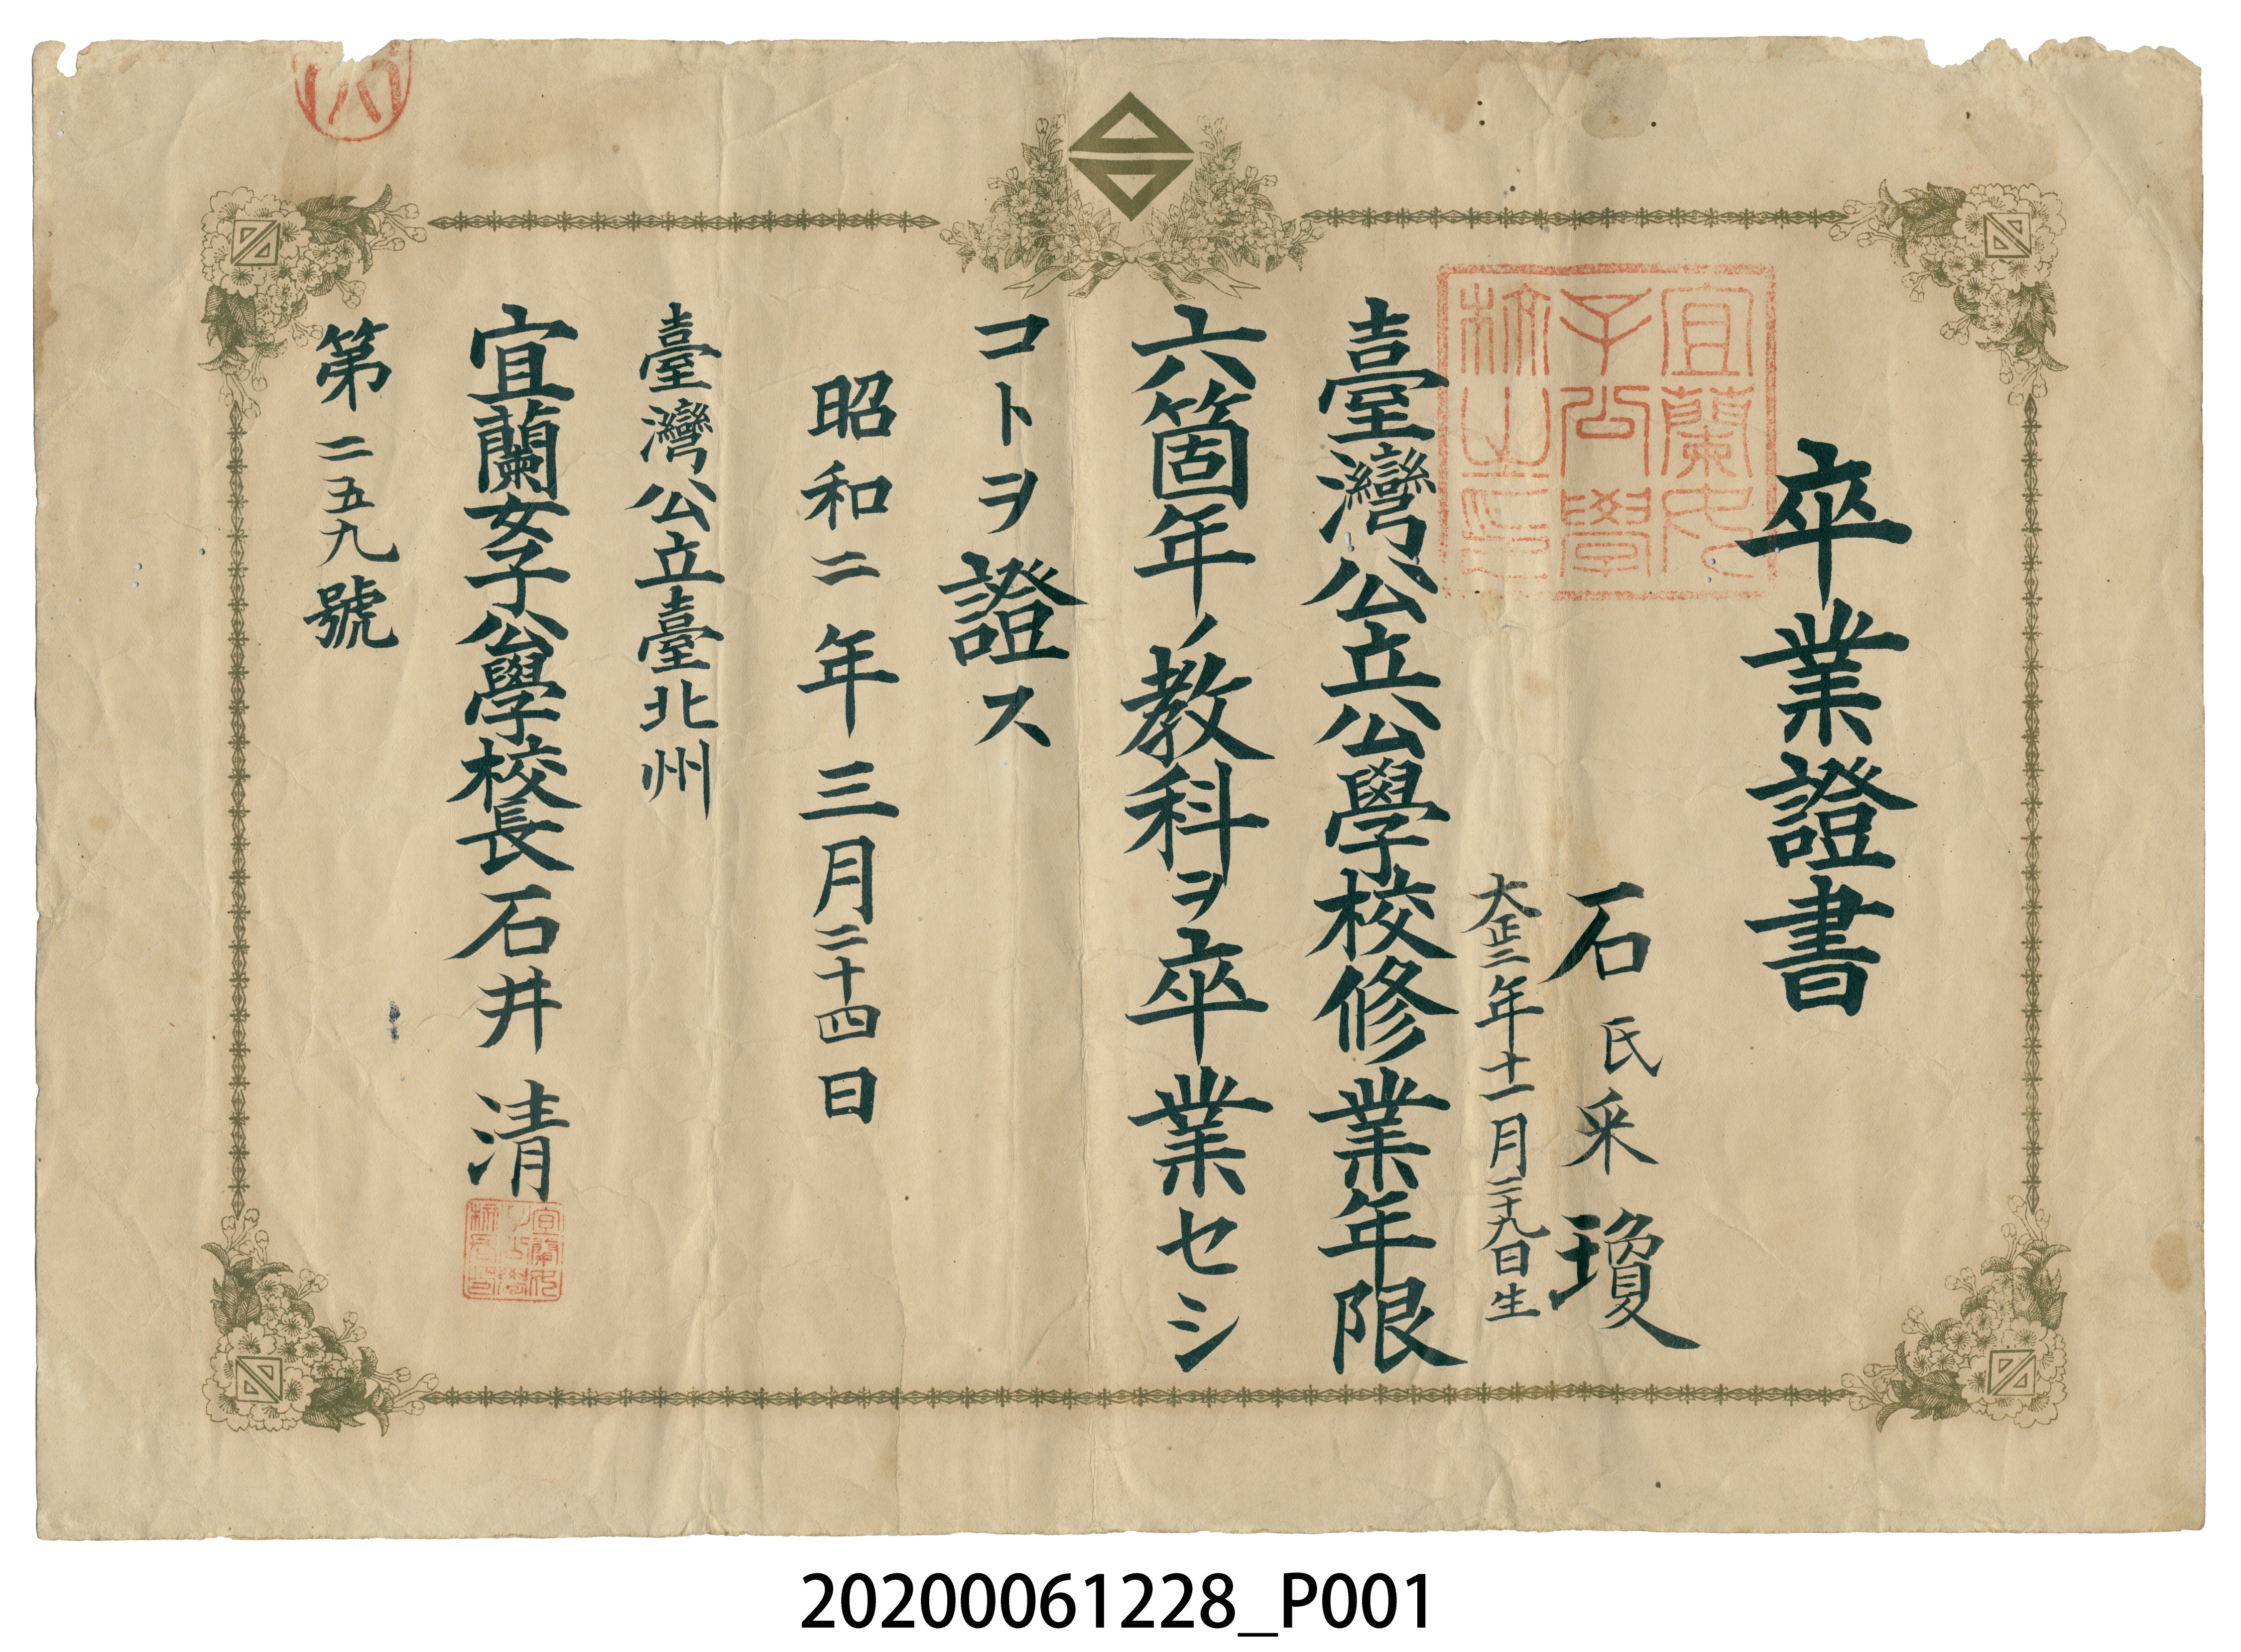 卒業證書
石氏采瓊
大正二年十一月二十九日生
宜蘭女
子公學
校之印
臺灣公立公學校修業年限
六箇年ノ教科ヲ卒業セシ
コトヲ證ス
昭和二年三月二十四日
臺灣公立臺北州
宜蘭女子公學校長石井清
宜蘭女
子公學
校長印
第二五九號
20200061228_P001